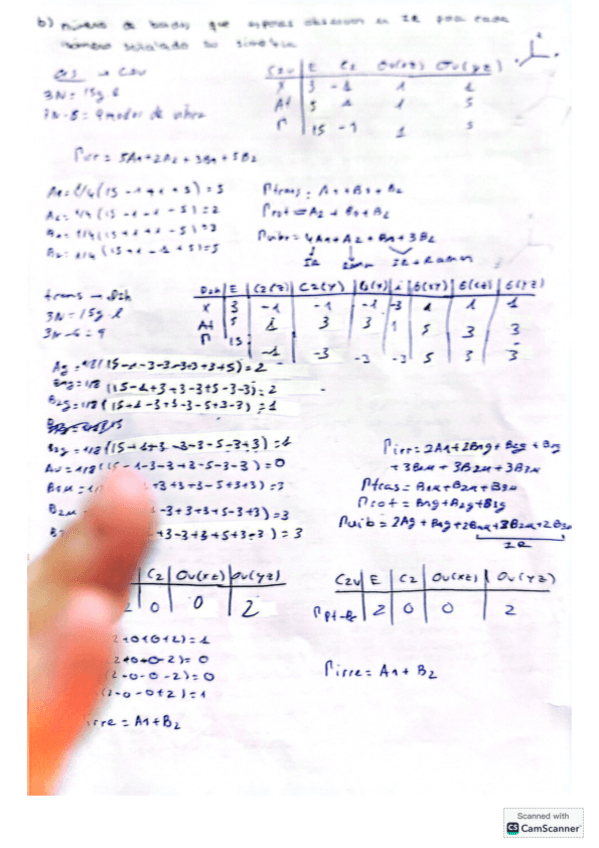 b) número de bandas que esperas observar en IR para cada
isómero señalado su simetría
cis → C2v
3N = 15 g.l
3N-6 = 9 modos de vibra
C2v | E C2 σv(xz) σv(yz)
X 3 -1 1 1
At 5 1 1 5
Γ 15 -1 1 5
Γirr = 5A1+2A2+3B1+5B2
A1 = 1/4 (15 -1+1+5) = 5
A2 = 1/4 (15 -1-1-5) = 2
(15+1+1-5) = 3
(15+1-1+5) = 5
Γtras: A1+B1+B2
Γrot = A2+B1+B2
Γvibr = 4A1+A2+B1+3B2
IR Raman IR+Raman
trans → D2h
3N = 15 g.l
3N-6 = 9
D2h | E | C2(z) | C2(y) | C2(x) | i | σ(xy) | σ(xz) | σ(yz)
X 3 -1 -1 -1 -3 1 1 1
At 5 1 3 3 1 5 3 3
Γ 15 -1 -3 -3 -3 5 3 3
Ag = 1/8 (15-1-3-3-3+3+3+5) = 2
B1g = 1/8 (15-1+3+3-3+5-3-3) = 2
B2g = 1/8 (15+1-3+3-3-5+3-3) = 1
B3g = 1/8 (15+1+3-3-3-5-3+3) = 1
Au = 1/8 (15-1-3-3+3-5-3-3) = 0
B1u +3+3+3-5+3+3) = 3
B2u -3+3+3+5-3+3) = 3
+3-3+3+5+3-3) = 3
Γirr = 2Ag+2B1g+B2g+B3g
+3B1u+3B2u+3B3u
Γtras = B1u+B2u+B3u
Γrot = B1g+B2g+B3g
Γvib = 2Ag+B1g+2B1u+2B2u+2B3u
IR
C2 | σv(xz) | σv(yz)
2 0 0 2
2+0+0+2) = 1
2+0+0-2) = 0
(2-0-0-2) = 0
(2-0-0+2) = 1
irre = A1+B2
C2v | E | C2 | σv(xz) | σv(yz)
ΓPt-Br 2 0 0 2
Γirre = A1+B2
Scanned with
CS CamScanner